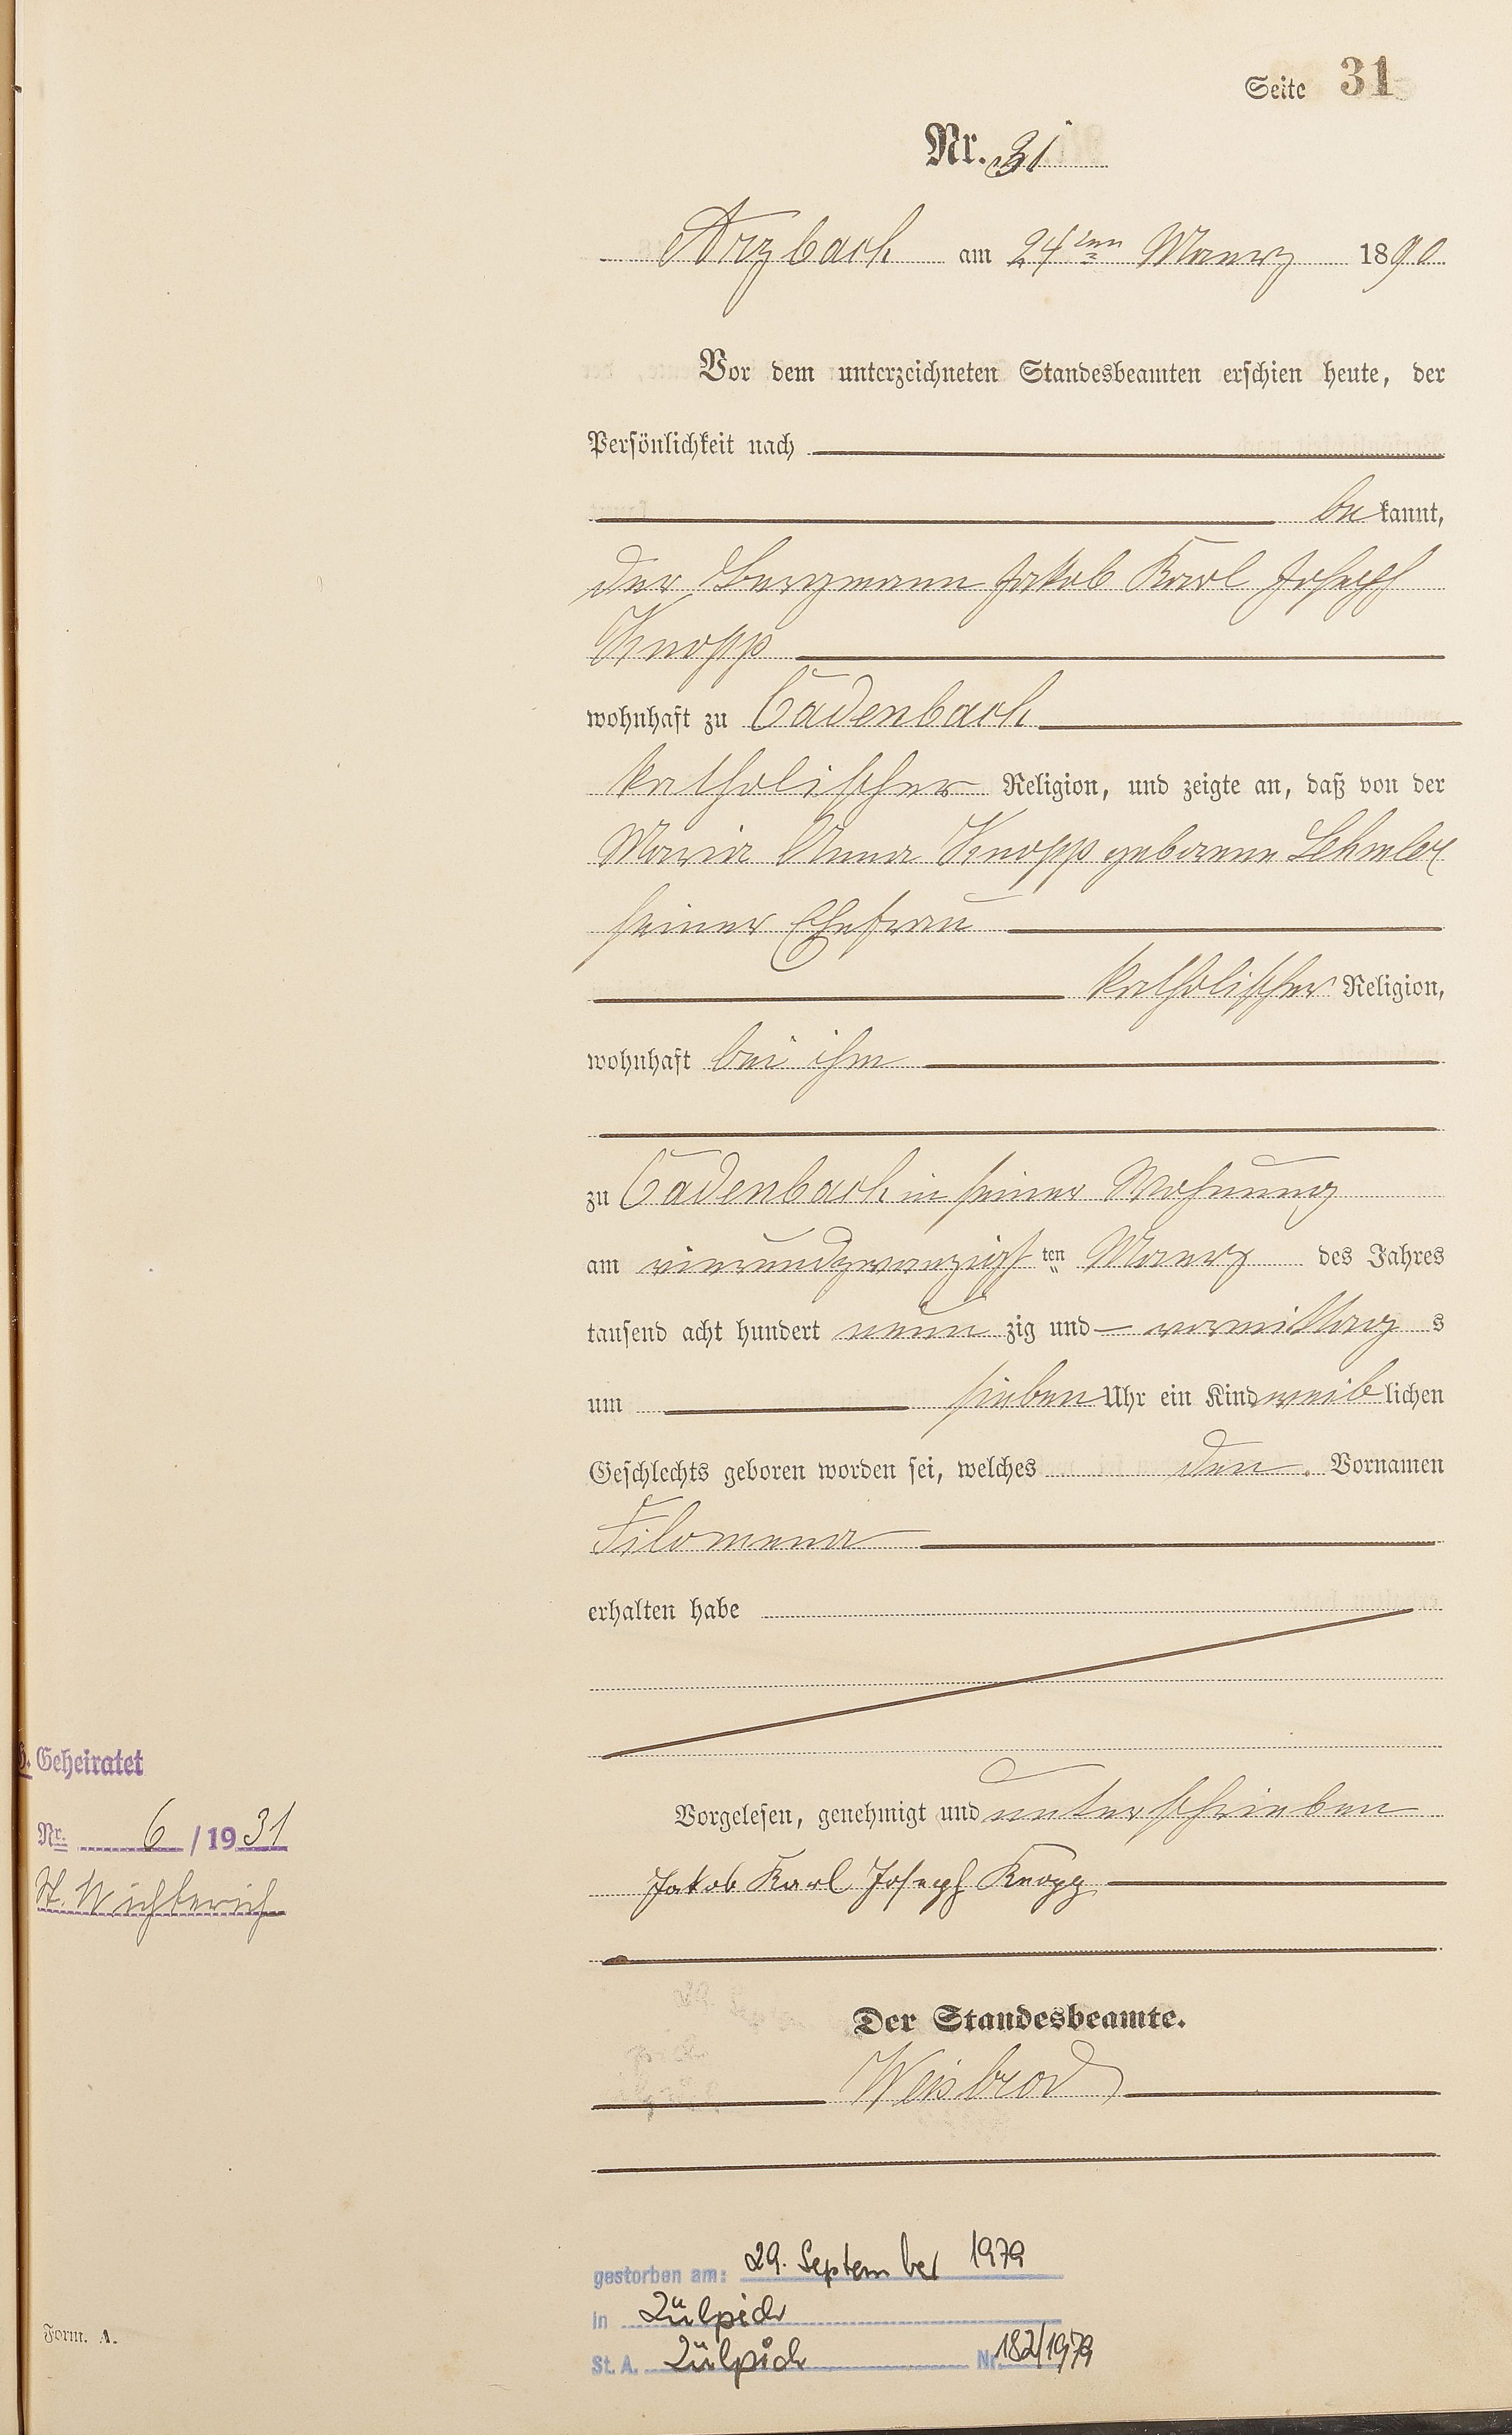 Seite 31
Nr. 31
Arzbach am 24ten Maerz 1890
Vor dem unterzeichneten Standesbeamten erschien heute, der
Persönlichkeit nach
bekannt,
der Bergmann Jakob Karl Joseph
Knopp
wohnhaft zu Cadenbach
katholischer Religion, und zeigte an, daß von der
Maria Anna Knopp geborene Lehmler
seiner Ehefrau
katholischer Religion,
wohnhaft bei ihm
zu Cadenbach in seiner Wohnung
am vierundzwanzigsten Maerz des Jahres
tausend acht hundert neunzig und vormittags
um sieben Uhr ein Kind weiblichen
Geschlechts geboren worden sei, welches den Vornamen
Filomena
erhalten habe
Geheiratet
Nr. 6/1931
St. Wichterich
Vorgelesen, genehmigt und unterschrieben
Jakob Karl Joseph Knopp
Der Standesbeamte.
Weisbrod
gestorben am: 29. September 1979
in Zülpich
St. A. Zülpich Nr. 182/1979
Form. A.